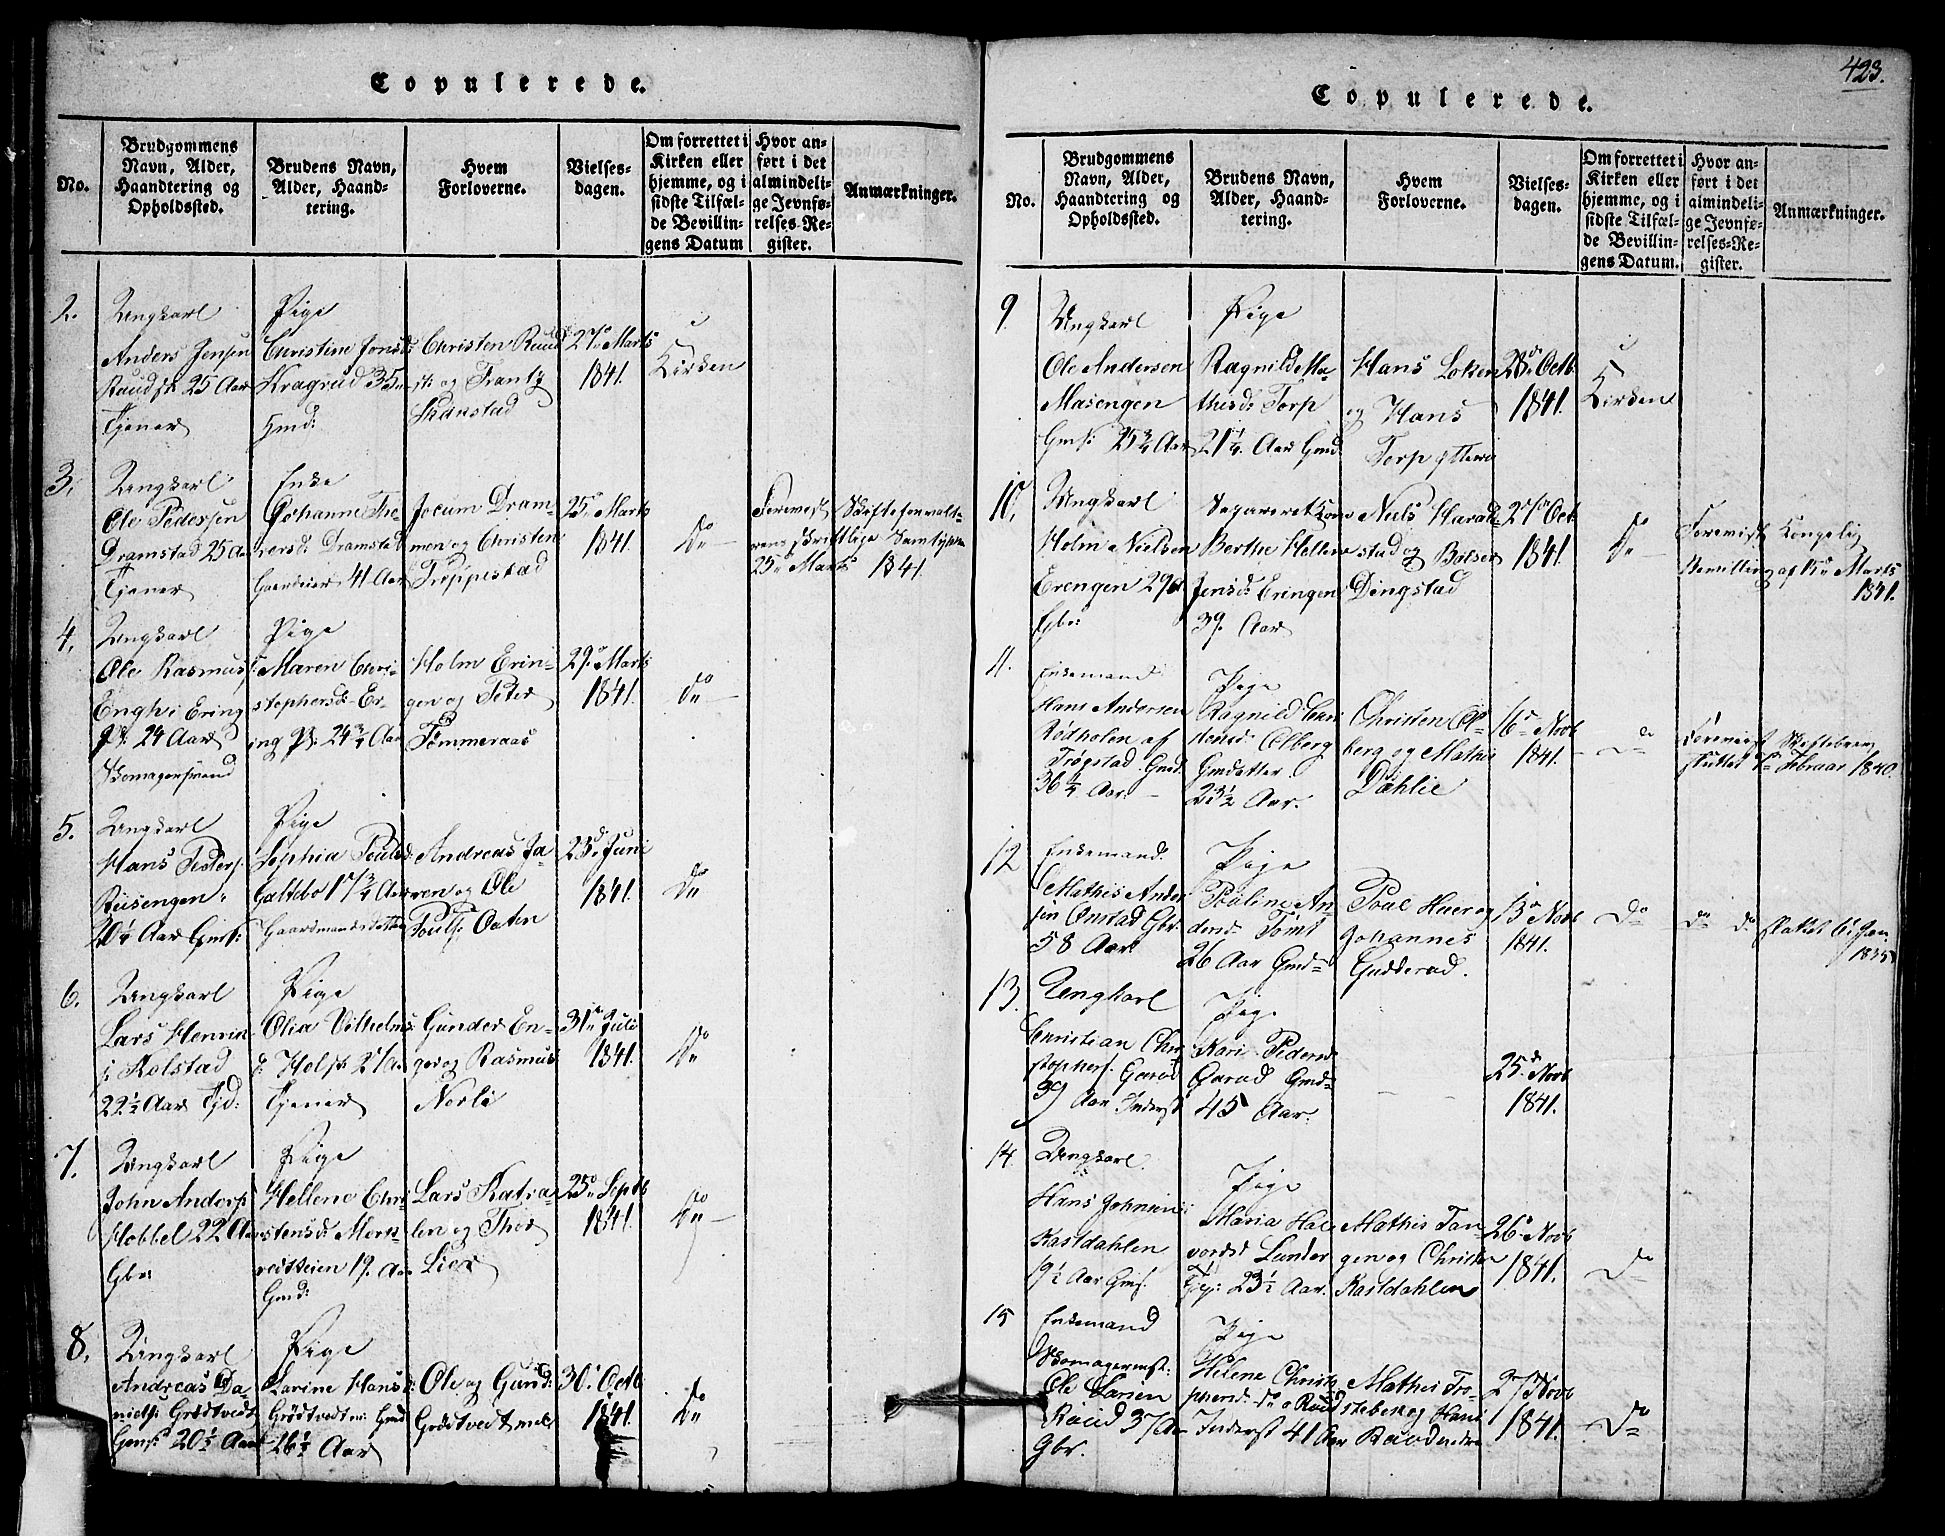 Copulerede.
No.
Brudgommens Navn, Alder, Haandtering og Opholdssted.
Brudens Navn, Alder, Haandtering.
Hvem Forloverne.
Vielsesdagen.
Om forrettet i Kirken eller hjemme, og i sidste Tilfælde Bevillingens Datum
Hvor anført i det almindelige Jevnførelses-Register.
Anmærkninger.
2.
Ungkarl
Anders Jensen
25 Aar
Tjener
Pige
Christine
Kragrud 35
Gmd:
Christen Ruud
og Frantz
Skanstad
27. Marts
1841.
i
Kirken
3.
Ungkarl
Ole Pedersen
Dramstad 25 Aar
Tjener
Enke
Johanne The-
rersd: Dramstad
Gaardeier 41 Aar
Jocum Dram-
men og Christen
Trippestad
25. Marts
1841.
do
Forevist Skifteforvalte-
rens skriftlige Samtykke
25. Marts 1841.
4.
Ungkarl
Ole Rasmus
Engh i Ering
24 Aar
Skomagersvend
Pige
Maren Chri-
stophersd: Er-
ing 24 3/4 Aar
Holm Erin-
gen og Peter
Tømmeraas
29. Marts
1841.
do
5.
Ungkarl
Hans Peders:
Riisengen
20 1/4 Aar Gms:
Pige
Sophia Poulsd:
Galtebo 17 3/4 Aar
Gaardmandsdatter
Andreas Ja-
ren og Ole
Pouls: Oaten
23. Juni
1841.
do
6.
Ungkarl
Lars Henrik
Kolstad
22 1/2 Aar Tjd:
Pige
Olia Vilhelms
Tjener
Gunder En-
ger og Rasmus
Norli
31. Juli
1841.
do
7.
Ungkarl
John Anders:
Hobbel 22 Aar
Gbr:
Pige
Hellene Chri-
stensd: Mort-
19. Aar
Gmd:
Lars Katra-
len og Thor
Lier
25. Septb
1841.
do
8.
Ungkarl
Andreas Da-
niels: Grødtvedt
Gms: 20 1/2 Aar
Pige
Karine Hansd:
Grødtvedt Gmd
26 1/2 Aar
Ole og Gund:
Grødtvedt
30. Octb
1841.
do
423.
Copulerede.
No.
Brudgommens Navn, Alder, Haandtering og Opholdssted.
Brudens Navn, Alder, Haandtering.
Hvem Forloverne.
Vielsesdagen.
Om forrettet i Kirken eller hjemme, og i sidste Tilfælde Bevillingens Datum.
Hvor anført i det almindelige Jevnførelses-Register.
Anmærkninger.
9.
Ungkarl
Ole Andersen
Masengen
Gms: 25 3/4 Aar
Pige
Ragnild Ma-
thisd: Torp
21 1/4 Aar Gmd
Hans Loken
og Hans
Torp yttere
28. Octb
1841.
i
Kirken
10.
Ungkarl
Holm Nielsen
Erengen 29
Gbr:
Separeret Kone
Berthe Hellene
Jensd: Eringen
39. Aar
Niels Harald-
stad og
Dingstad
27. Oct
1841.
do
Forevist Kongelig
Bevilling af Marts
1841.
11.
Enkemand
Hans Andersen
Rødholen af
Trøgstad Gmd.
36 1/4 Aar.
Pige
Ragnild Chri-
stensd: Olberg
Gmdatter
23 1/2 Aar.
Christen Ol-
berg og Mathis
Dahlie
16. Novb
1841.
do
Forevist Skiftebrev
sluttet Februar 1840.
12
Enkemand.
Mathis Ander-
sen Onstad Gbr:
58 Aar.
Pige
Pouline An-
dersd. Tomt
26 Aar Gmd
Poul Huer og
Johannes
Gudderud.
13. Novb
1841.
do
do do sluttet 6. Jan.
1835
13.
Ungkarl
Christian Chri-
stophers. Garud
39 Aar Inderst
Pige
Kari Pedersd
Garud Gmd
45 Aar.
25. Novb
1841.
14.
Ungkarl.
Hans Johnsen
Kastdahlen
19 1/2 Aar Gms.
Pige
Maria Hal-
vorsd Lunder
23 1/2 Aar.
Mathis Tan-
gen og Christen
Kastdahlen
26. Novb
1841.
do
15
Enkemand
Skomagermst:
Ole Larsen
Raud 37 Aar
Gbr.
Pige
Helene Christo-
phersd. Raud
Inderst 41 Aar
Mathis Tro-
steberg og Hans
Raud nedre
27. Novb
1841.
do